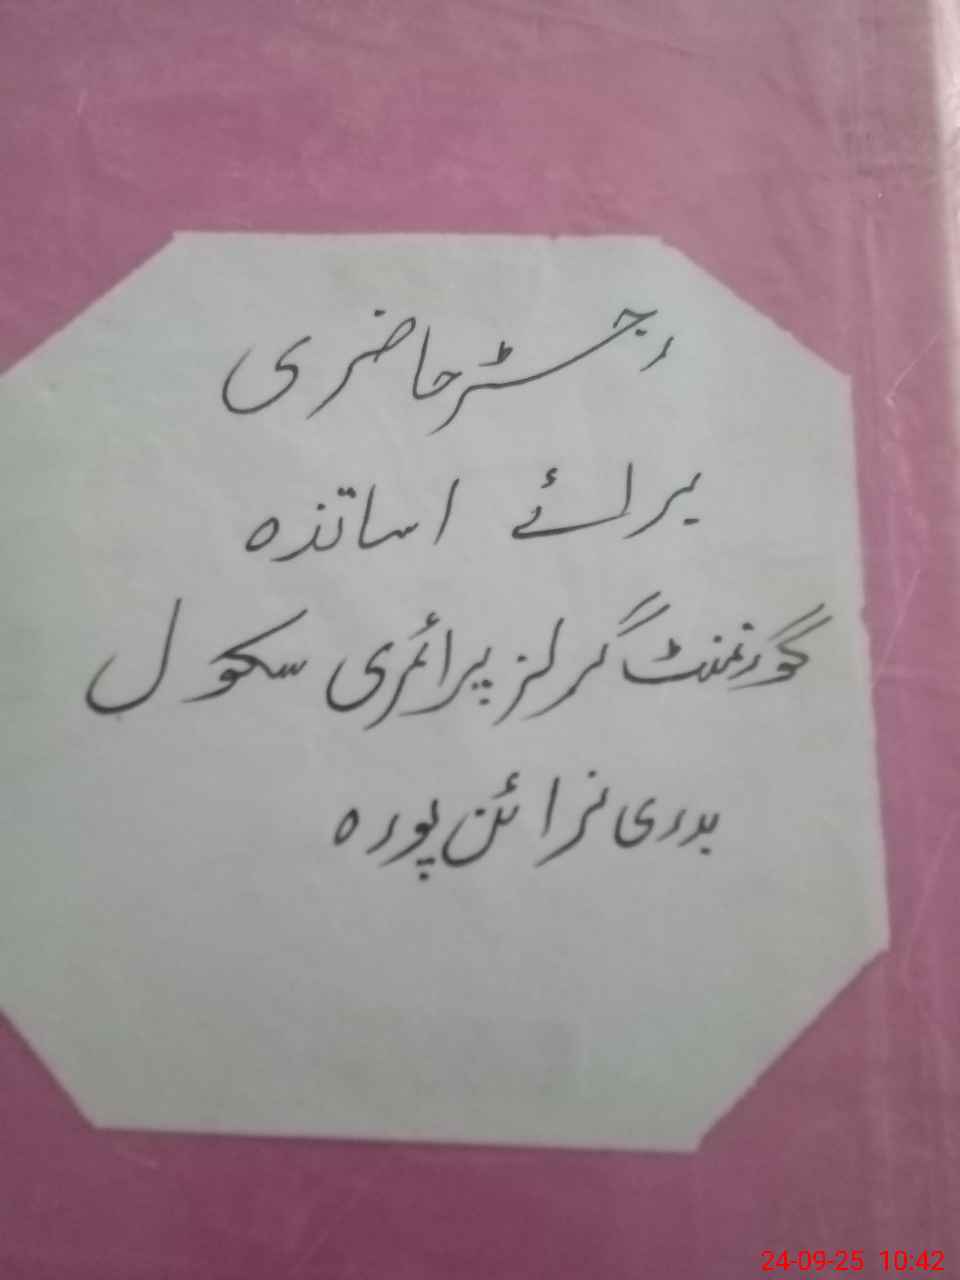 رجسٹر حاضری
برائے اساتذہ
گورنمنٹ گرلز پرائمری سکول
بدری نرائن پورہ
24-09-25 10:42